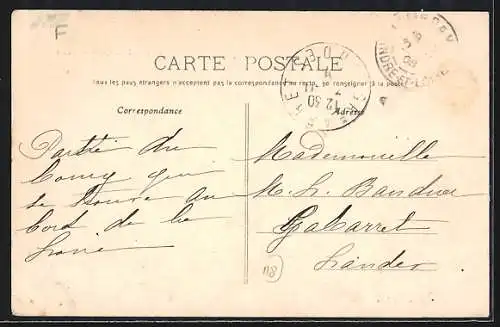 F
CARTE POSTALE
Tous les pays étrangers n'acceptent pas la correspondance au recto, se renseigner à la poste
Correspondance
Adresse
INDRE-ET-LOIRE
12 30
Partie du
bourg qui
se trouve au
bord de la
Loire
Mademoiselle
M. L.
Gabarret
Landes